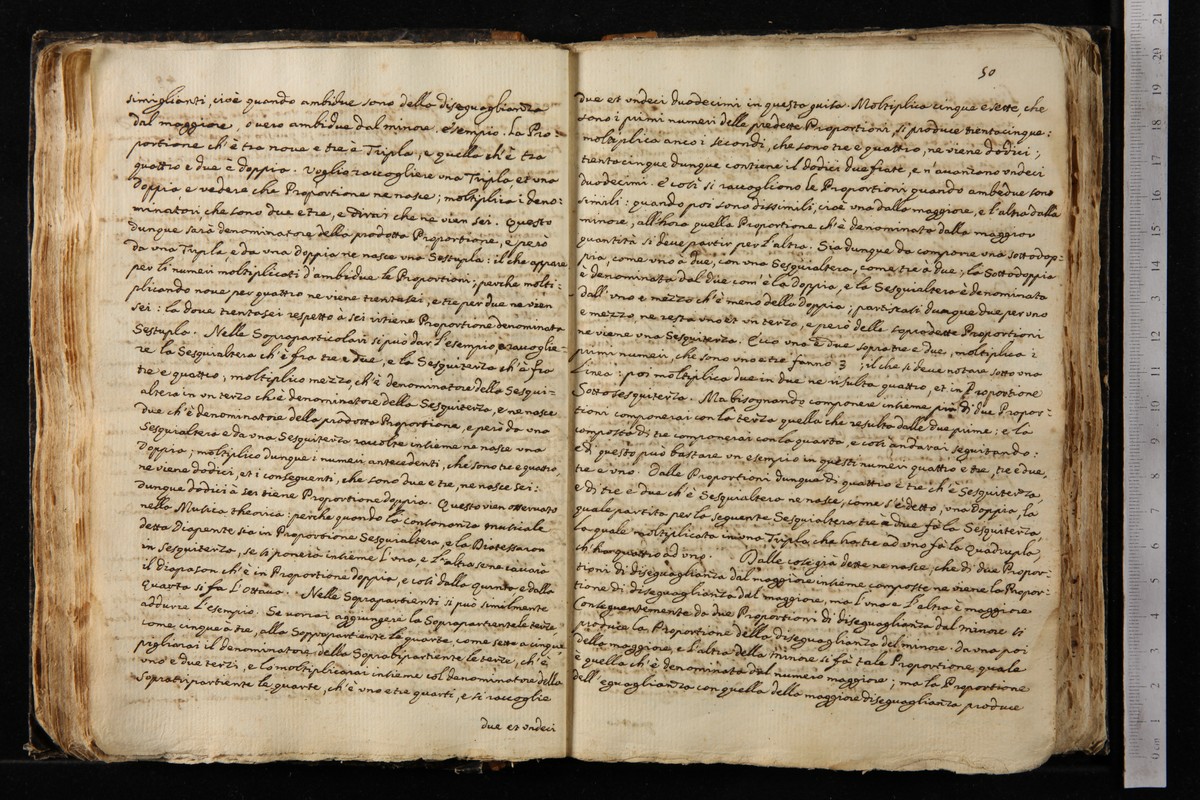 simiglianti, cioè quando ambidue sono della diseguaglianza
dal maggiore, overo ambidue dal minore, esempio. La Pro-
portione ch'è tra noue e tre è Tripla, e quella ch'è tra
quattro e due è doppia. Voglio raccogliere una Tripla et una
Doppia e vedere che Proportione ne nasce; moltiplica i deno:
minatori che sono due e tre, e dirai che ne vien sei. Questo
dunque sarà denominatore della prodotta Proportione, e però
da una Tripla e da una doppia ne nasce una Sestupla: il che appare
per li numeri moltiplicati d'ambidue le Proportioni; perche molti:
plicando noue per quattro ne viene trentasei, e tre per due ne vien
sei: la doue trentasei rispetto à sei ritiene Proportione denominata
Sestupla. Nelle Sopraparticolari si può dar l'esempio, e raccoglie-
re la Sesquialtera ch'è fra tre e due, e la Sesquiterza ch'è fra
tre e quattro, moltiplico mezzo, ch'è denominatore della Sesqui-
altera in un terzo ch'è denominatore della Sesquiterza, e ne nasce
Due ch'è denominatore della prodotta Proportione, e però da una
Sesquialtera e da una Sesquiterza raccolte insieme ne nasce una
Doppia; moltiplico dunque i numeri antecedenti, che sono tre e quattro,
ne viene dodici, et i conseguenti, che sono due e tre, ne nasce sei:
dunque dodici à sei tiene Proportione doppia. Questo vien osservato
nella Musica theorica: perche quando la consonanza musicale
detta Diapente sia in Proportione Sesquialtera, e la Diatessaron
in sesquiterza, se si ponerà insieme l'una, e l'altra sene cauarà
il diapason ch'è in Proportione doppia, e così dalla Quinta e dalla
Quarta si fa l'Ottaua. Nelle Soprapartienti si può similmente
addurre l'esempio. Se vorrai aggiungere la Soprapartiente le terze,
come cinque à tre, alla Soprapartiente le quarte, come sette a cinque
pigliarai il denominatore della Soprabipartiente le terze, ch'è
uno e due terzi, e lo moltiplicarai insieme col denominatore della
sopratripartiente le quarte, ch'è uno e tre quarti, e si raccoglie
due et undeci
50
due et undeci duodecimi in questa guisa. Moltiplica cinque e sette, che
sono i primi numeri delle predette Proportioni, si produce trentacinque:
moltiplica anco i secondi, che sono tre e quattro, ne viene dodici:,
trentacinque dunque contiene il dodici due fiate, e n'auanzano undeci
duodecimi. E così si raccogliono le Proportioni quando ambedue sono
simili: quando poi sono dissimili, cioè una dalla maggiore, e l'altra dalla
minore, all'hora quella Proportione ch'è denominata dalla maggior
quantità si deue partir per l'altra. Sia dunque da comporre una sottodop:
pia, come uno à due, con una Sesquialtera, come tre à due; la Sottodoppia
è denominata dal due com'è la Doppia, e la Sesquialtera è denominata
dall'uno e mezzo ch'è meno della Doppia; partirassi dunque due per uno
e mezzo, ne resta uno et un terzo, e però delle sopradette Proportioni
ne viene una Sesquiterza. Ecco una è due sopra tre e due, moltiplica i
primi numeri, che sono uno e tre fanno 3; il che si deve notare sotto una
linea: poi moltiplica due in due ne risulta quattro, et in Proportione
Sottosesquiterza. Ma bisognando componere insieme più di due Propor-
tioni componerai con la terza quella che resulta dalle due prime; e la
composta di tre componerai con la quarta, e così andarai seguitando:
e di questo può bastare un esempio in questi numeri quattro e tre, tre è due,
tre e uno. Dalle Proportioni dunque di quattro è tre ch'è Sesquiterza,
e di tre e due ch'è Sesquialtera ne nasce, come s'è detto, una Doppia, la
quale partita per la seguente Sesquialtera tre a due fà la Sesquiterza,
la quale moltiplicata in una Tripla, che ha tre ad uno fà la Quadrupla,
ch'ha quattro ad uno. Dalle cose già dette ne nasce, che di due Propor-
tioni di diseguaglianza dal maggiore insieme composte ne viene la Propor-
tione di diseguaglianza dal maggiore, ma l'una e l'altra è maggiore
Conseguentemente da due Proportioni di diseguaglianza dal minore si
produce la Proportione della diseguaglianza del minore: da una poi
della maggiore, e l'altra della minore si fà tale Proportione, quale
è quella ch'è denominata dal numero maggiore; ma la Proportione
dell'eguaglianza con quella della maggiore diseguaglianza produce